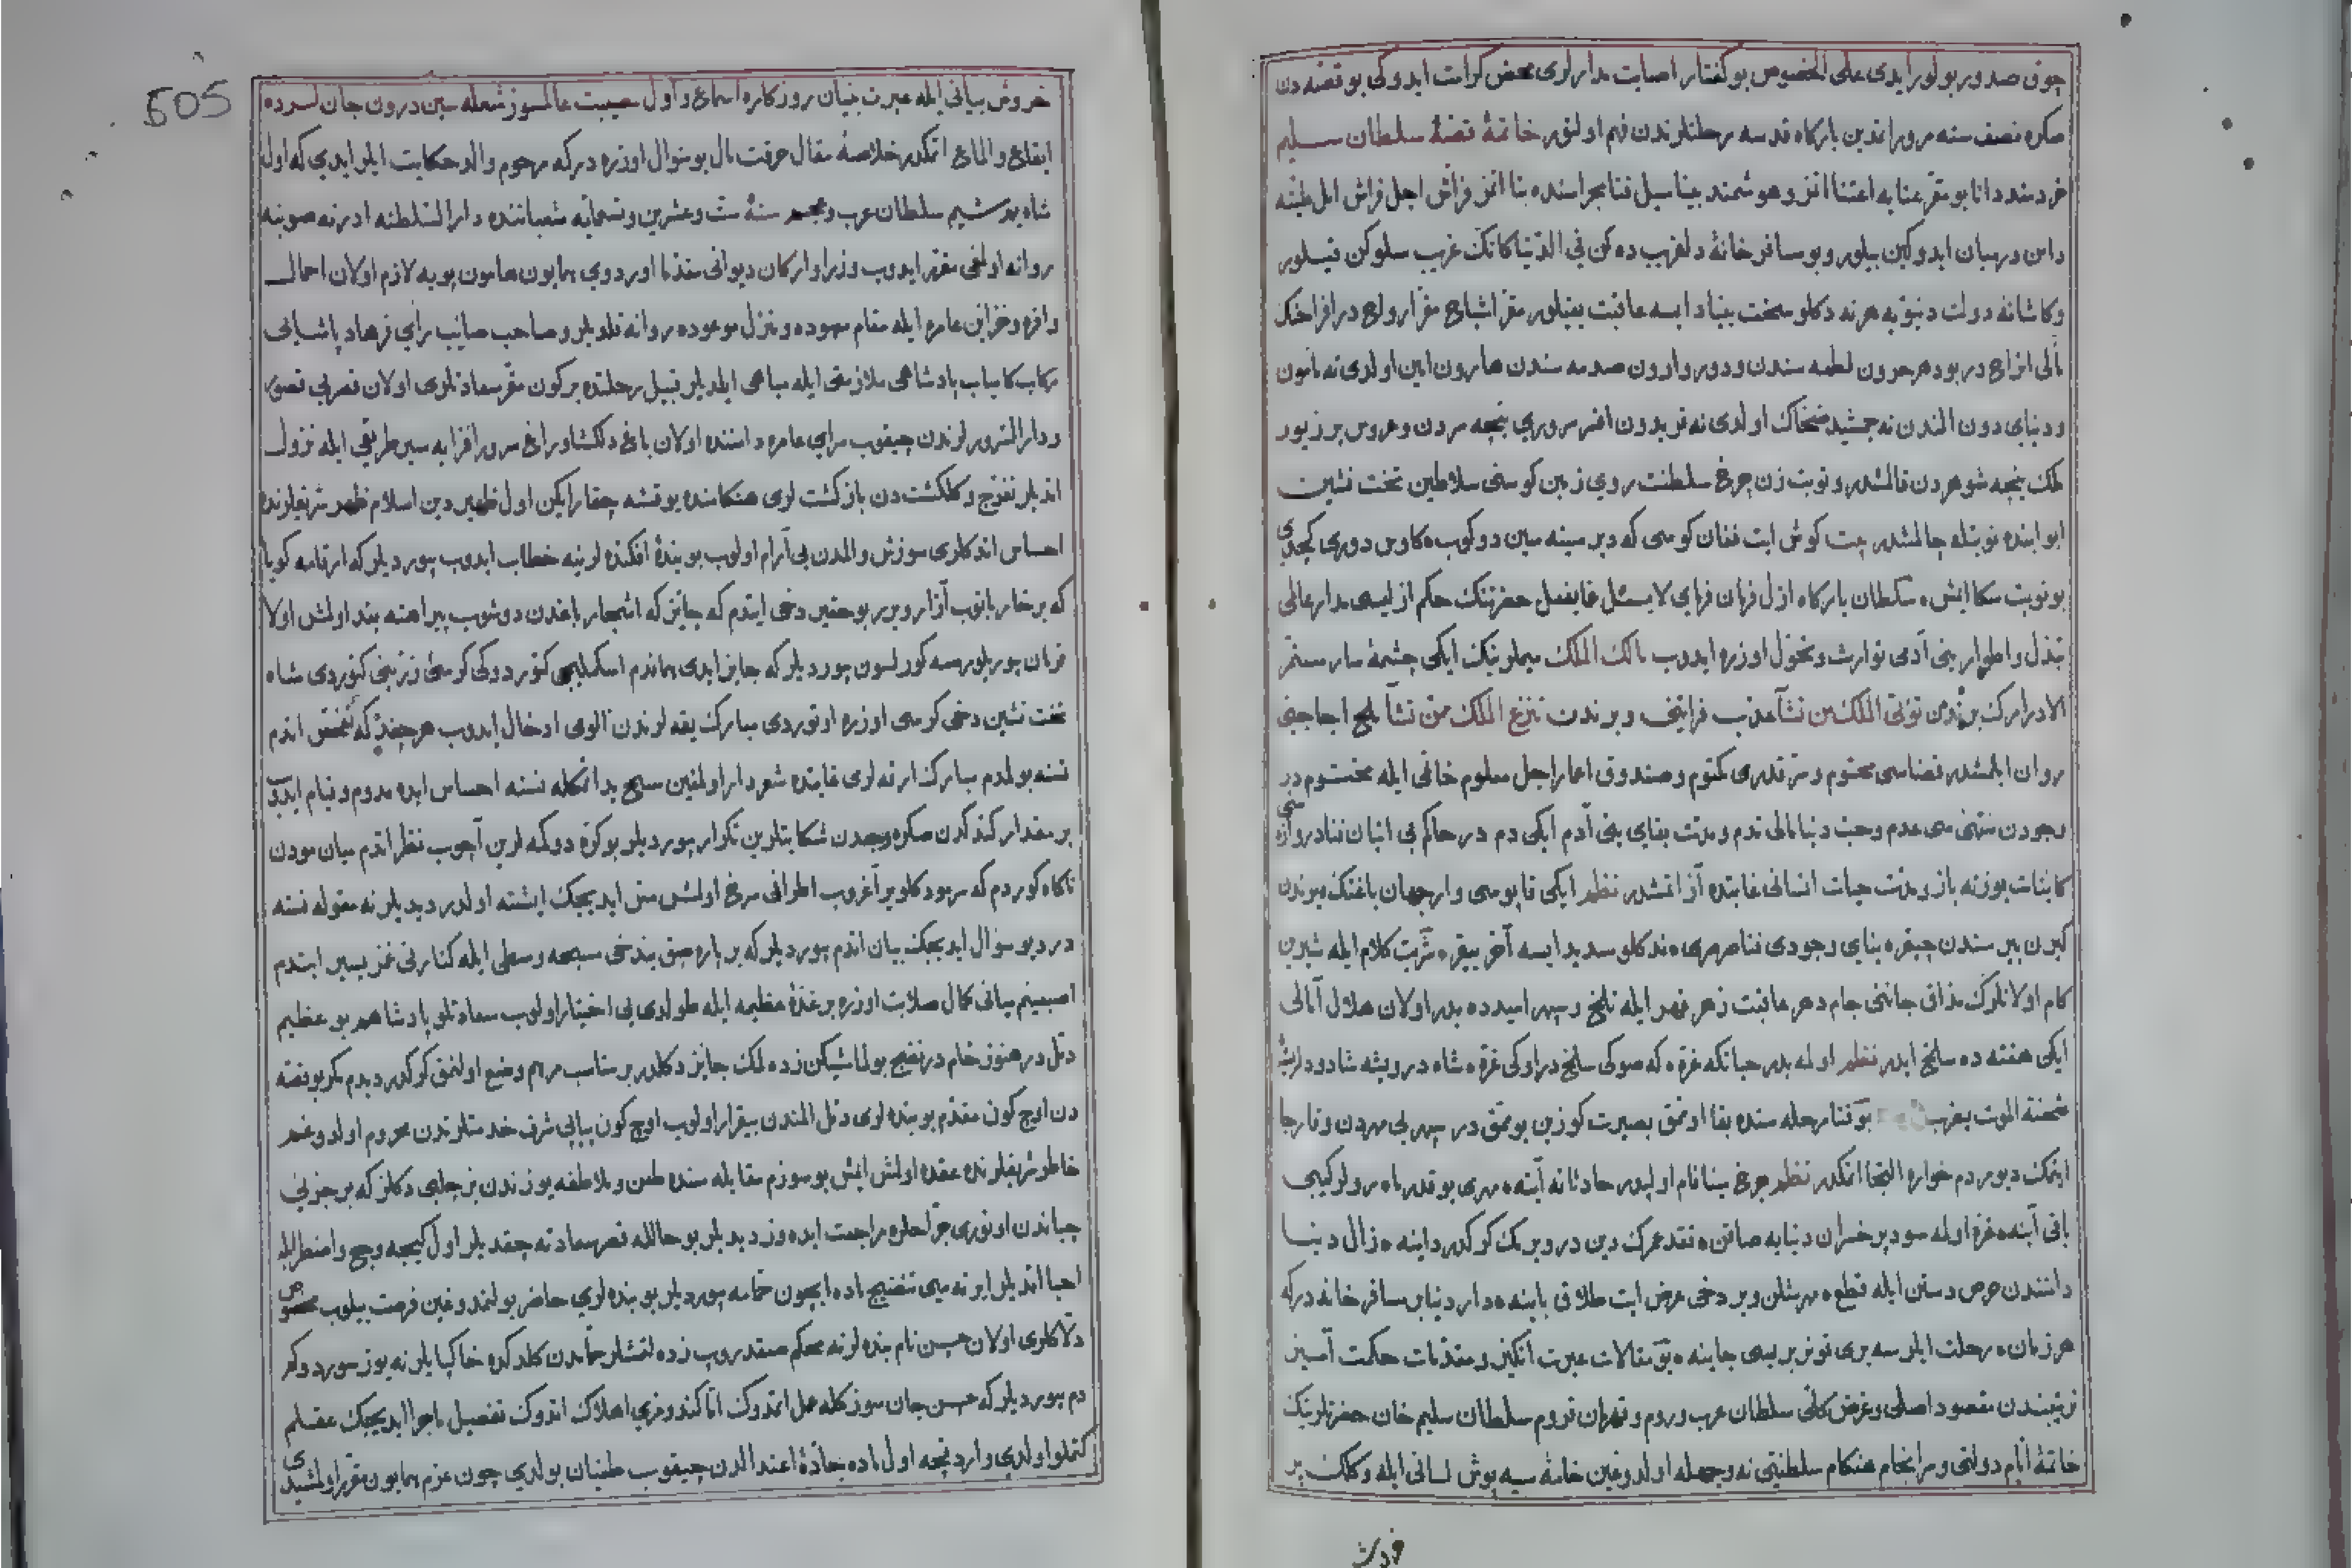 چون صدور بولور ایدی علی الخصوص بو کفتار اصابت مدارلری محض کرامت ایدوکی بو قصه دن
صکره نصف سنه مرور اتدین بارکاه قدسه رحلتلرندن فهم اولنور خاتمهٔ قصهٔ سلطان سلیم
خردمند دانا بو مقر عنایه اعتنا اتمز و هوشمند بینا سیل فنا مجراسنده بنا اتمز فراش اجل فراش امل طیّنه
دامن درمیان ایدوکین بیلور و بو مسافر خانهٔ دلفریب ده کن فی الدّنیا کانّک غریب سلوکن قیلور
وکاشانهٔ دولت دنیویه هر نه دکلو سخت بنیاد ایسه عاقبت یقیلور مقرّ اشباح مقرّ ارواح در افراختک
مآلی اتراح در بو دهر حرون لطمه سندن و دور وارون صدمه سندن هارون امین اولدی نه مأمون
و دنیای دون المندن نه جمشید ضحاک اولدی نه فریدون افسر سروری نیجه سردن و عروس پر زیور
ملک نیجه شوهردن قالمشدر و نوبت زن چرخ سلطنت روی زمین کوسنی سلاطین تخت نشین
ابوابنده نوبتله چالمشدر بیت کوش ایت فغان کوسی که دیر سینه سین دوکوب کاوس دوری کجدی
بو نوبت سکا ایش سلطان بارکاه ازل فرمان فرمای لایسئل عمایفعل حضرتنک حکم ازلیسی مدار عالمی
تبدّل و اطوار بنی آدمی توارث و تحوّل اوزره ایدوب مالک الملک سیملرینک ایکی چشمهٔ سار مستمر
الادرارک برندن تؤتی الملک من تشآ عذب فراتنی و برندن تنزع الملک ممن تشآ ملح اجاجنی
روان ایلمشدر قضاسی محتوم و سرّ قدری مکتوم و صندوق اعمار اجل معلوم خاتمی ایله مختوم در
وجودن منتهی سی عدم و محبت دنیا مالی ندم و مدت بقای بنی آدم ایکی دم در حاکم بی امان فنا دروازه سی
کاینات یوزنه باز و مدت حیات انسانی غایتده آز اتمشدر نظم ایکی قاپوسی وار جهان باغنک بوندن
کیرن بیر سندن چیقر بنای وجودی فنا صرصری نه دکلو سدید ایسه آخر ییقر شربت کلام ایله شیرین
کام اولانلرک مذاق جاننی جام دهر عاقبت زهر قهر ایله تلخ و سپهر امیدده بدر اولان هلال آمالی
ایکی هفته ده سلخ ایدر نظم اوله بدر جهانکه غره که صوکی سلخ در اوکی غره شاه درویشه شاد و دلریشه
شحنهٔ الموت بو فنا رحله سنده بقا اومق بصیرت کوزین یومق در سپهر بی مهردن وفا رجا
ایتمک دیو مردم خواره التجا اتمکدر نظم چرخ مینا نام اولپدر حادثاته آینه مهری یوقدر ماه رولر کیبی
باقی آینه غره اوله سود پر خسران دنیایه صاقن نقد عمرک دین در ویرمک کوکدر داینه زال دنیا
دامنندن حرص دستن ایله قطع مهرشلن ویر دخی عرض ایت طلاق باینه دار دنیا بر مسافر خانه درکه
هر زمان رحلت ایلر سه بری قونر بریسی جاینه بو مقالات عبرت انکیز و مقدمات حکمت آمیز
ترتیبندن مقصود اصلی و غرض کلی سلطان عرب و روم و قهرمان قروم سلطان سلیم خان حضرتلرینک
خاتمهٔ ایام دولتی و سرانجام هنکام سلطنتی نه وجهله اولدوغین خامهٔ سیه پوش لسانی ایله و کلک پر
خروش بیانی ایله عبرت بنیان روزکاره اسماع و اول مصیبت عالمسوز شعله سین درون جان سرده
ایقاع و الماع اتمکدر خلاصهٔ مقال حرقت مآل بو منوال اوزره درکه مرحوم والد حکایت ایلر ایدی که اول
شاه بدر شیم سلطان عرب و عجم سنهٔ ست و عشرین و تسعمائه شعباننده دار السلطنه ادرنه صوبنه
روانه اولمغی مقرر ایدوب وزرا و ارکان دیوانی مقدّما اوردوی همایون هامون پویه لازم اولان احمال
وافره و خزاین عامره ایله مقام معهوده و منزل موعوده روانه قلدیلر و صاحب صائب رأی فرهاد پاشایی
رکاب کامیاب پادشاهی ملازمتی ایله مباهی ایلدیلر قبیل رحلتده بر کون مقرّ سعادتلری اولان قصر بی قصور
و دار السرورلرندن چیقوب سرای عامره دامننده اولان باغ دلکشا و راغ سرور افزایه سیر طریقی ایله نزول
اتدیلر تفرّج و کلکشت دن بازکشت لری هنکامنده یوقشه چقارایکن اول ظهیر دین اسلام ظهر شریفلرنده
احساس اتدکلری سوزش و المدن بی آرام اولوب بو بندهٔ افکنده لرینه خطاب ایدوب بیوردیلر که ارقامه کویا
که بر خار باتوب آزار ویرر بو حقیر دخی ایتدم که جائز که اشجار باغدن دوشوب پیراهنه بند اولمش اولا
فرمان بیوریلورسه کورلسون بیوردیلر که جایز ایدی هماندم اسکملیجی کتوردوکی کوسئ زرینی کتوردی شاه
تخت نشین دخی کرسی اوزره اوتوردی مبارک یقه لرندن الوی ادخال ایدوب هر چند که تفحّص اتدم
نسنه بولمدم مبارک ارقه لری غایتده شعردار اولمغین سطح بدانکله نسنه احساس ایده مدم و قیام ایدوب
بر مقدار کتدکدن صکره وجعدن شکایتلرین تکرار بیوردیلر بو کرّه دوکمه لرین آچوب نظر اتدم میان مودن
ناکاه کوردم که سر بو دکلو یر آغروب اطرافی سرخ اولمش متن ایدیجک ایشته اولدر دیدیلر نه مقوله نسنه
در دیو سؤال ایدیجک بیان اتدم بیوردیلر که بر پاره صق بندخی سبحه وسطی ایله کنارنی غمز یسیر ایتدم
اصبعینم میانی کمال صلابت اوزره بر غدّهٔ عظیمه ایله طولدی بی اختیار اولوب سعادتلو پادشاهم بو عظیم
دمّل در هنوز خام در نضج بولماشیکن زده لمک جایز دکلدر بر مناسب مرهم وضع اولنمق کرکدر دیدم مکر بو قصه
دن اوچ کون مقدّم بو بنده لری دمّل المندن بیقرار اولوب اوچ کون پیاپی شرف خدمتلرندن محروم اولدوغم
خاطر شریفلرنده عقده اولمش ایمش بو سوزم مقابله سنده طعن و ملاطفه یوزندن بز چلبی دکلز که بر جزئی
چباندن اوتوری جرّاحلره مراجعت ایده وز دیدیلر بو حالله قصر سعادته چقدیلر اول کیجه وجع و اضطرابله
احیا اتدیلر ایرته سی تنضیج ماده ایچون حمامه بیوردیلر بو بنده لری حاضر بولنمدوغین فرصت بیلوب مخصوص
دلّاکلری اولان حسن نام بنده لرنه محکم صقدروب زده لتمشلر حمامدن کلدکده خاکپایلرنه یوز سوردوکم
دم بیوردیلر که حسن جان سوزکله عمل اتمدوک امّا کندومزی اهلاک اتدوک تفصیل ماجرا ایدیجک عقلم
کتملو اولدی واردقجه اول ماده جادّهٔ اعتدالدن چیقوب طغیان بولدی چون عزم همایون مقرر اولمشیدی
فردت
605